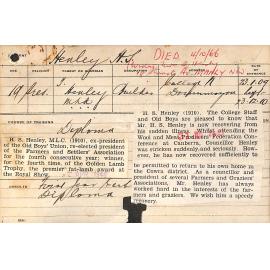 Henley H.S.
DIED 4/10/66
19 Pres. J. Henley Builder College A 23.1.09
Drummoyne Sept
COURSE OF TRAINING
Diploma
H. S. Henley, M.L.C. (1910), ex-president
of the Old Boys' Union, re-elected president
of the Farmers and Settlers' Association
for the fourth consecutive year; winner,
for the fourth time, of the Golden Lamb
Trophy, the premier fat-lamb award at
the Royal Show.
Diploma
H. S. Henley (1910). The College Staff
and Old Boys are pleased to know that
Mr. H. S. Henley is now recovering from
his sudden illness. Whilst attending the
Wool and Meat Producers' Federation Conference
at Canberra, Councillor Henley
was stricken suddenly, and seriously. However,
he has now recovered sufficiently to
be permitted to return to his own home in
the Cowra district. As a councillor and
president of several Farmers' and Graziers'
Associations, Mr. Henley has always
worked hard in the interests of the farmers
and graziers. We wish him a speedy
recovery.